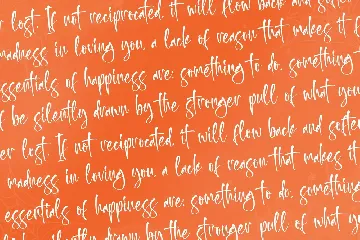 lost. If not reciprocated, it will flow back and
madness in loving you, a lack of reason that makes it
essentials of happiness are: something to do, something
of be silently drawn by the stronger pull of what you
er lost. If not reciprocated, it will flow back and soften
madness in loving you, a lack of reason that makes it
essentials of happiness are: something to do, something
silently drawn by the stronger pull of what